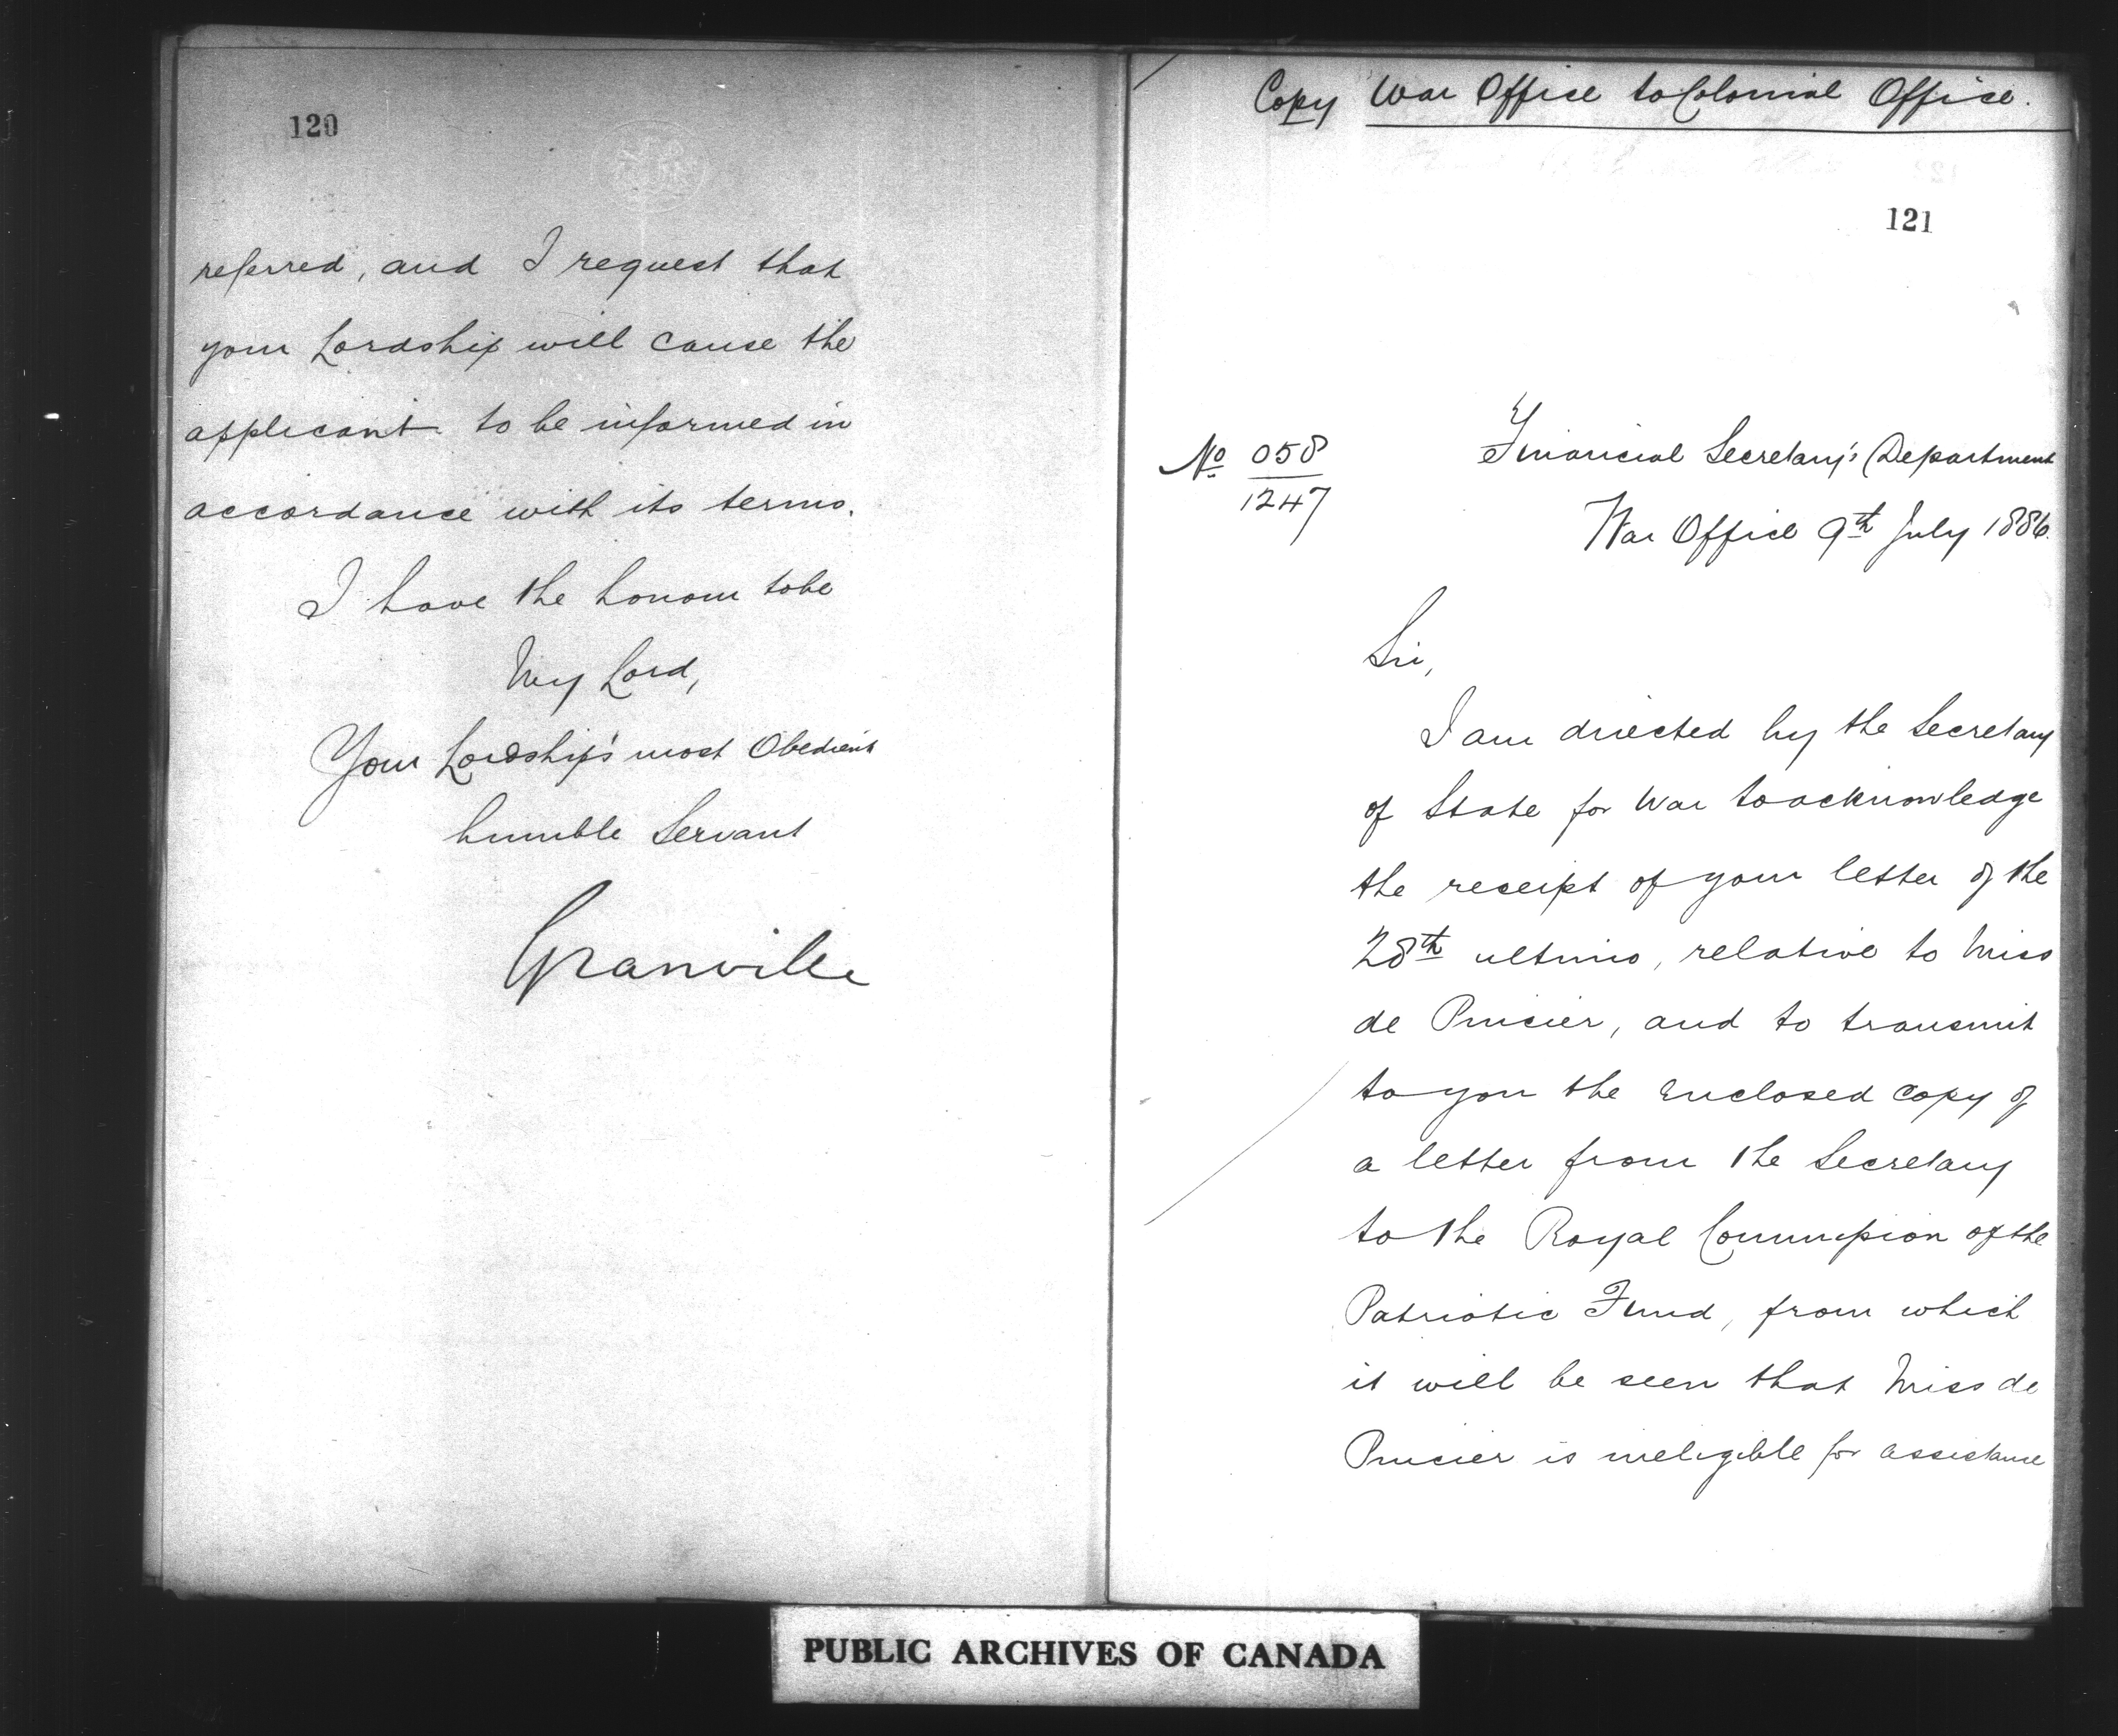 120
referred, and I request that
your Lordship will cause the
applicant to be informed in
accordance with its terms.
I have the honour to be
My Lord,
Your Lordship's most Obedient
humble Servant
Granville
Copy War Office to Colonial Office.
121
No 058
1247
Financial Secretary's Department
War Office 9th July 1886.
Sir,
I am directed by the Secretary
of State for War to acknowledge
the receipt of your letter of the
28th ultimo, relative to Miss
de , and to transmit
to you the enclosed copy of
a letter from the Secretary
to the Royal Commission of the
Patriotic Fund, from which
it will be seen that Miss de
is ineligible for assistance
PUBLIC ARCHIVES OF CANADA